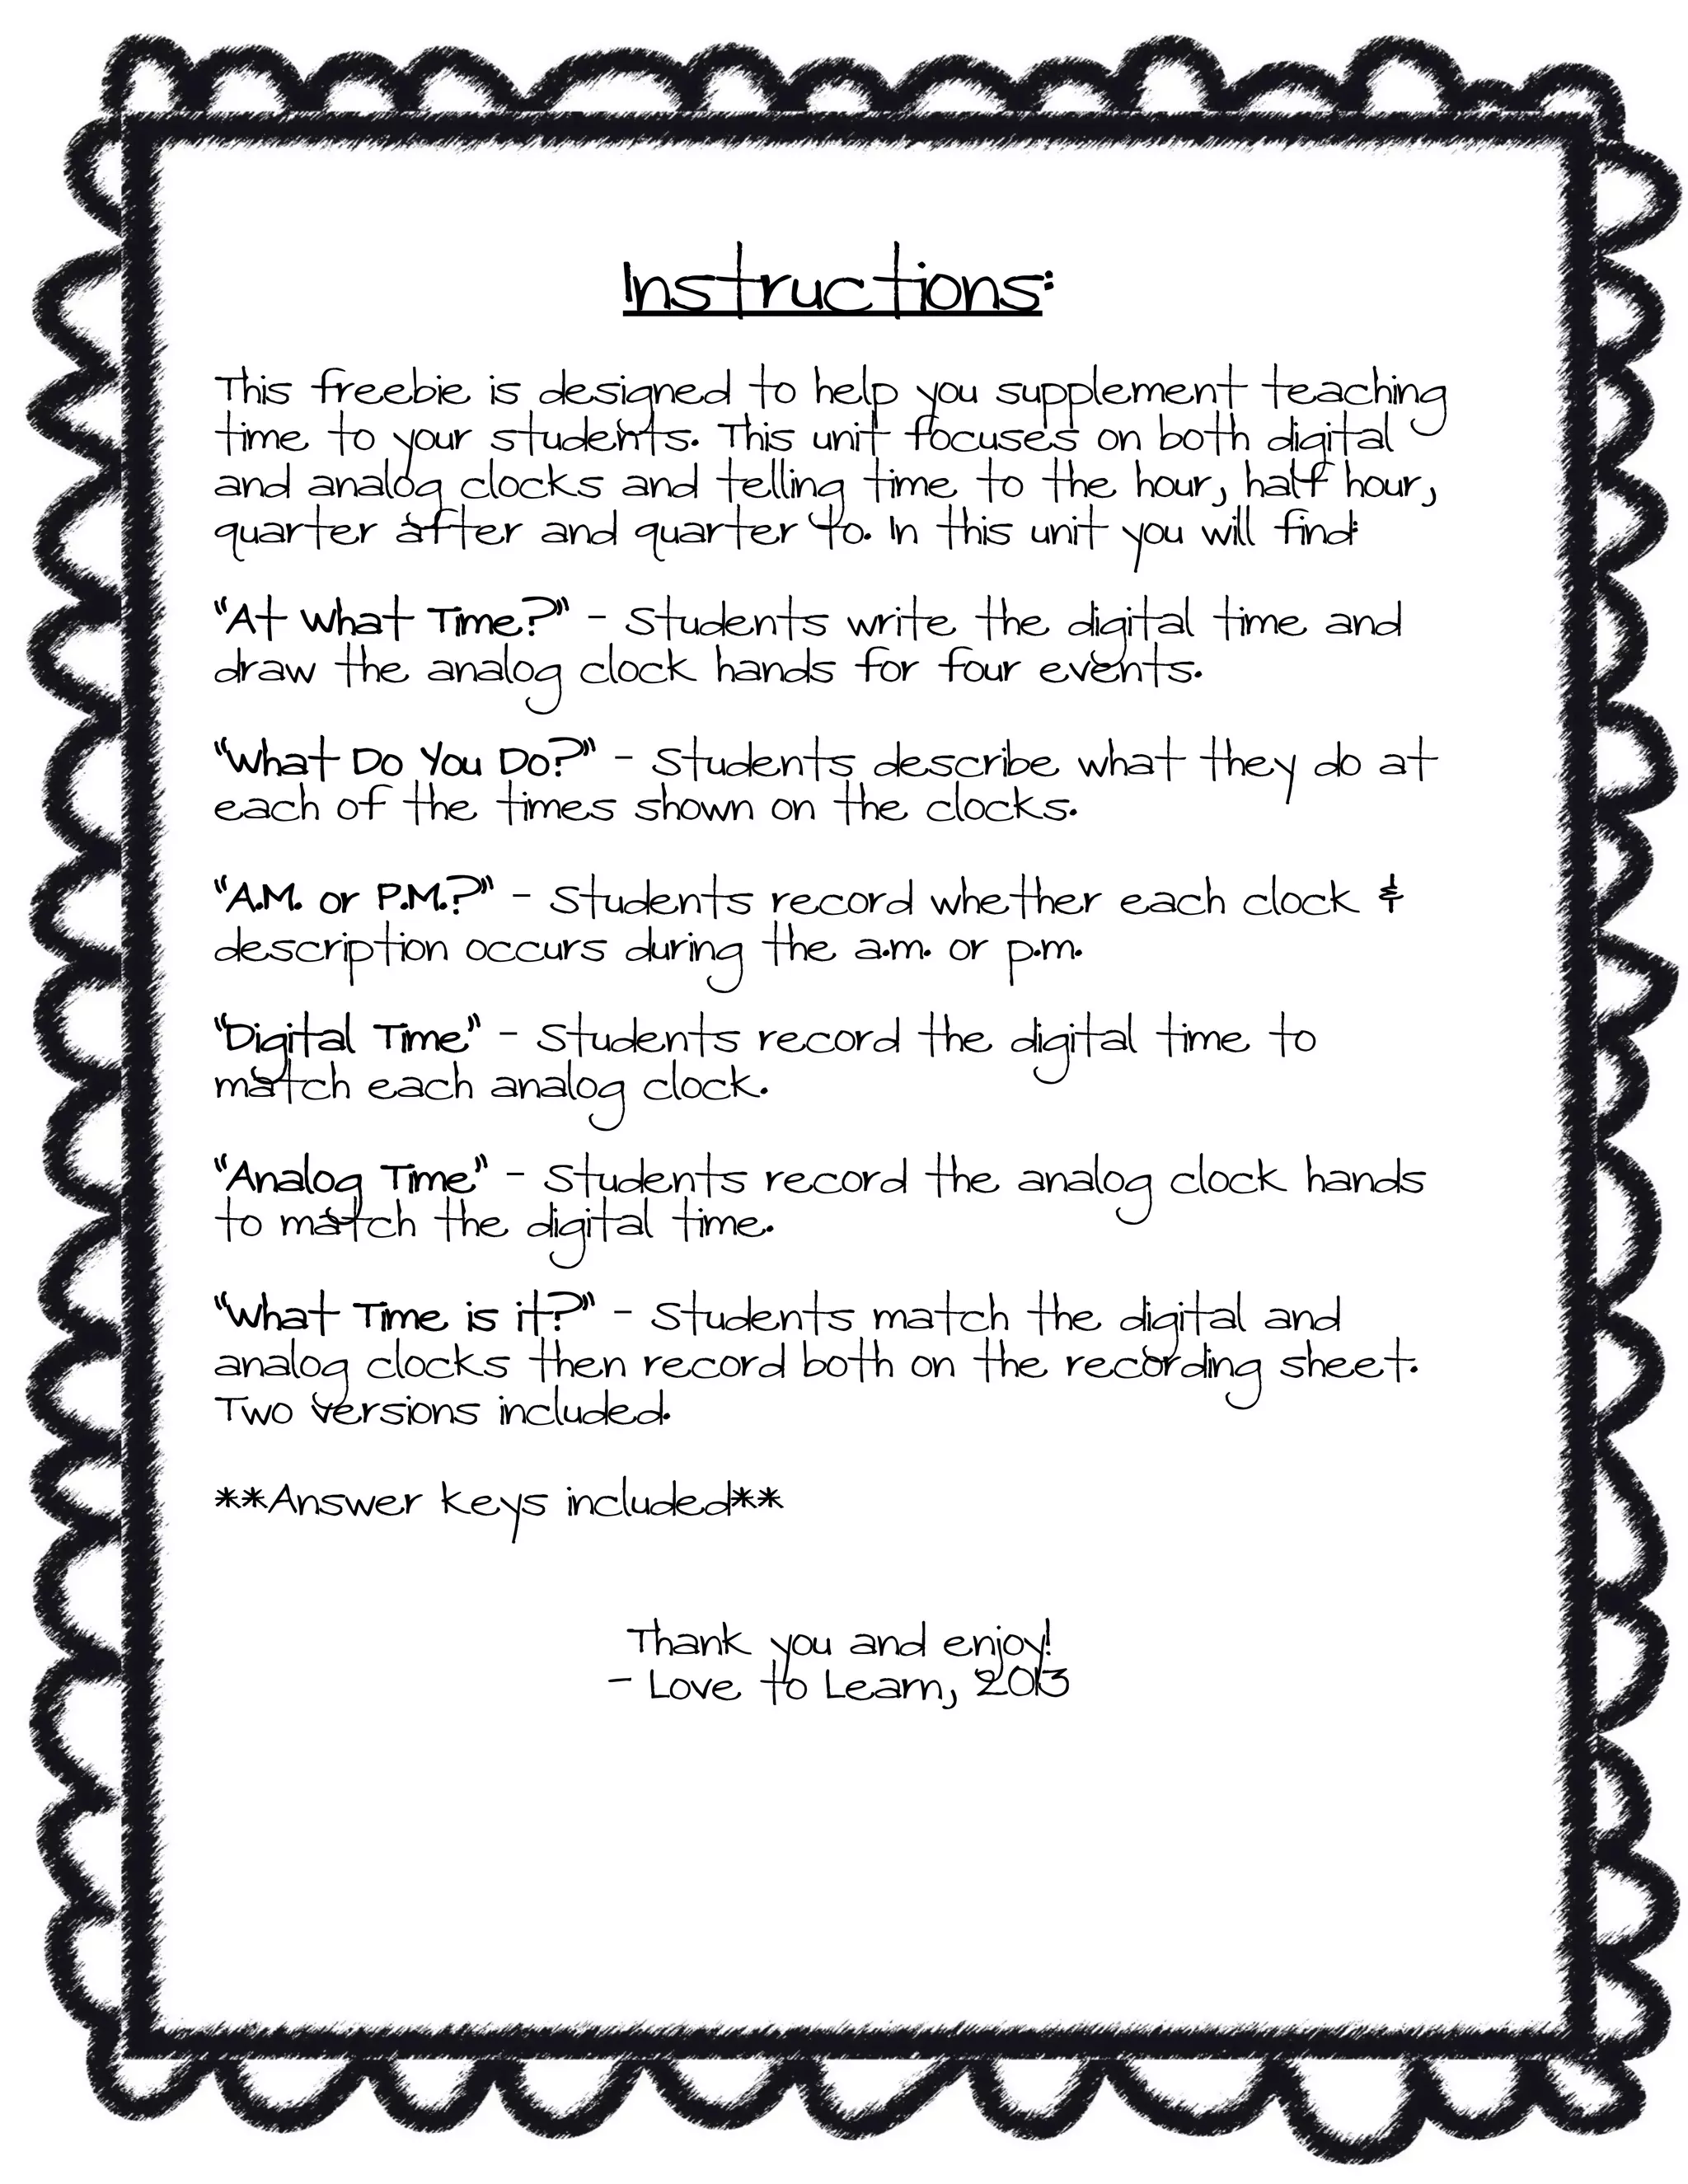 Instructions:
This freebie is designed to help you supplement teaching
time to your students. This unit focuses on both digital
and analog clocks and telling time to the hour, half hour,
quarter after and quarter to. In this unit you will find:
"At What Time?" - Students write the digital time and
draw the analog clock hands for four events.
"What Do You Do?" - Students describe what they do at
each of the times shown on the clocks.
"A.M. or P.M.?" - Students record whether each clock &
description occurs during the a.m. or p.m.
"Digital Time" - Students record the digital time to
match each analog clock.
"Analog Time" - Students record the analog clock hands
to match the digital time.
"What Time is it?" - Students match the digital and
analog clocks then record both on the recording sheet.
Two versions included.
**Answer keys included**
Thank you and enjoy!
- Love to Learn, 2013